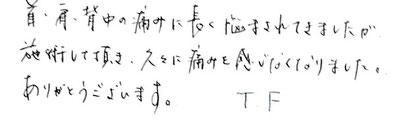 首・肩・背中の痛みに長く悩まされてきましたが
施術して頂き、久々に痛みを感じなくなりました。
ありがとうございます。 T.F